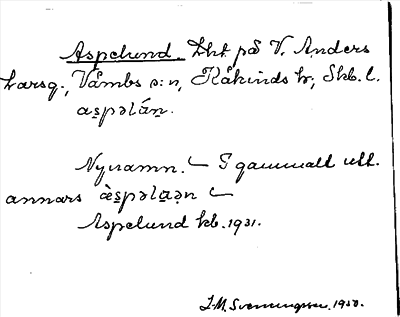 Aspelund. Lht på V. Anders
Larsg., Våmbs s:n, Kåkinds hd, Skb. l.
as̱pəláṉ.
Nynamn. — I gammalt utt.
annars às̱pəla̱ən —
Aspelund kb. 1931.
J. M. Svenningsson. 1930.